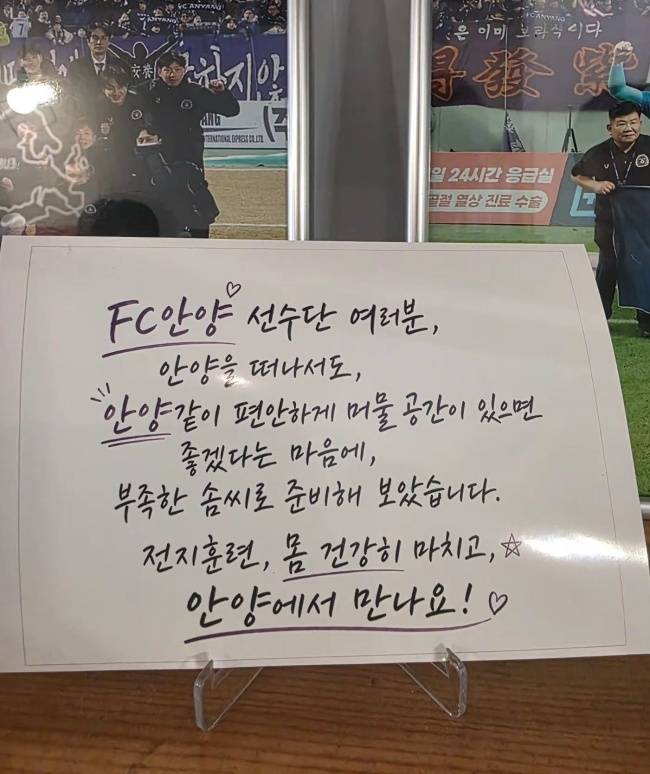 FC ANYANG
FC ANYANG
은 이미 보라색이다
INTERNATIONAL EXPRESS CO.,LTD.
일 24시간 응급실
골절 열상 진료 수술
FC안양♡ 선수단 여러분,
안양을 떠나서도,
안양같이 편안하게 머물 공간이 있으면
좋겠다는 마음에,
부족한 솜씨로 준비해 보았습니다.
전지훈련, 몸 건강히 마치고,☆
안양에서 만나요!♡